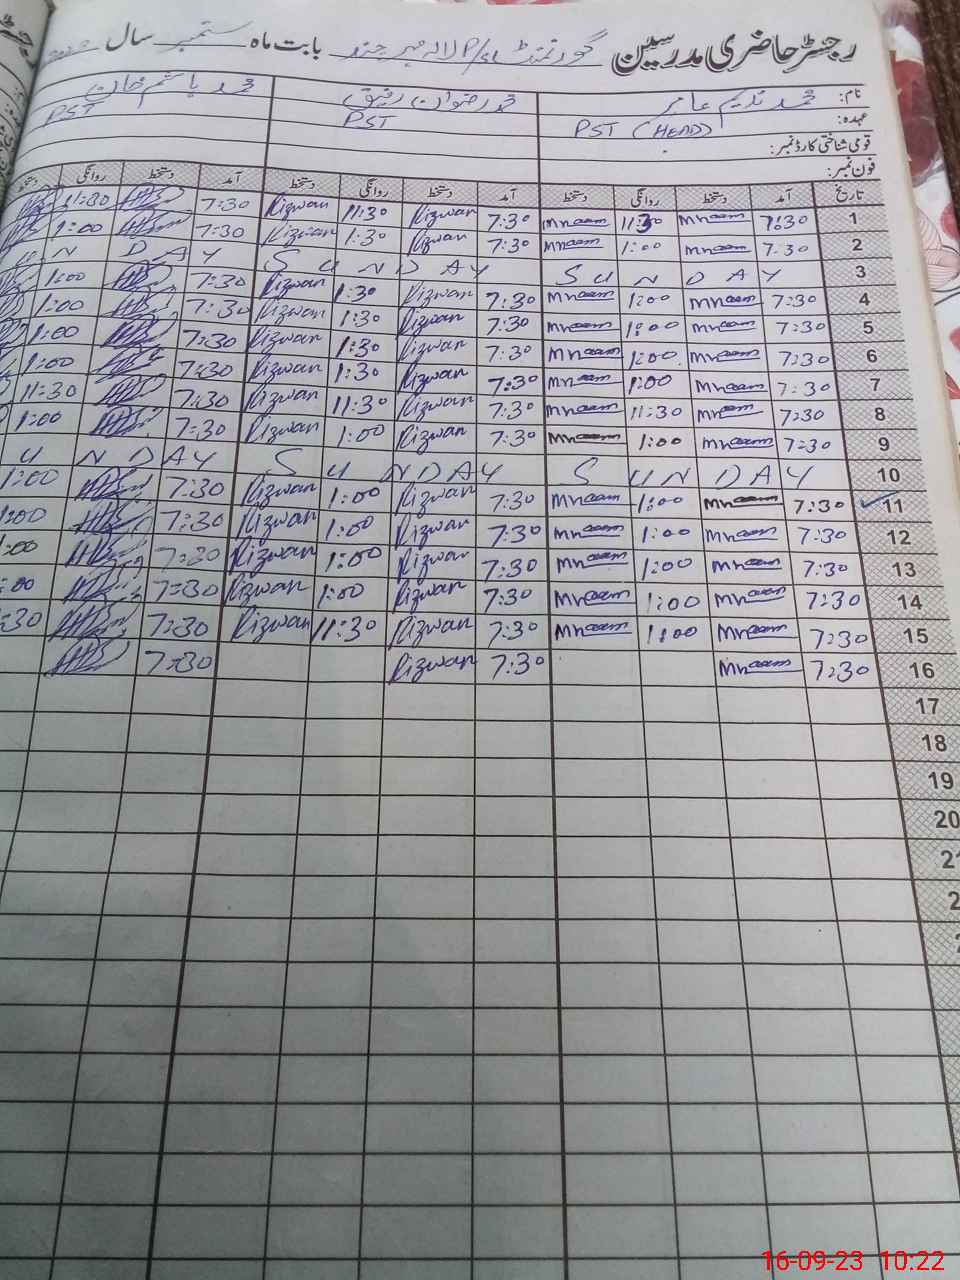 رجسٹر حاضری مدرسین گورنمنٹ P/S لالہ میر جند بابت ماہ ستمبر سال
نام: محمد ندیم عامر محمد رضوان رفیق محمد ہاشم خان
عہدہ: PST (HEAD) PST PST
قومی شناختی کارڈ نمبر:
فون نمبر:
تاریخ آمد دستخط روانگی دستخط آمد دستخط روانگی دستخط آمد دستخط روانگی دستخط
1 7:30 Mnaeem 11:30 Mnaeem 7:30 Rizwan 11:30 Rizwan 7:30 11:30
2 7:30 Mnaeem 1:00 Mnaeem 7:30 Rizwan 1:30 Rizwan 7:30 1:00
3 SUNDAY SUNDAY UNDAY
4 7:30 Mnaeem 1:00 Mnaeem 7:30 Rizwan 1:30 Rizwan 7:30 1:00
5 7:30 Mnaeem 1:00 Mnaeem 7:30 Rizwan 1:30 Rizwan 7:30 1:00
6 7:30 Mnaeem 1:00 Mnaeem 7:30 Rizwan 1:30 Rizwan 7:30 1:00
7 7:30 Mnaeem 1:00 Mnaeem 7:30 Rizwan 1:30 Rizwan 7:30 1:00
8 7:30 Mnaeem 11:30 Mnaeem 7:30 Rizwan 11:30 Rizwan 7:30 11:30
9 7:30 Mnaeem 1:00 Mnaeem 7:30 Rizwan 1:00 Rizwan 7:30 1:00
10 SUNDAY SUNDAY UNDAY
11 7:30 Mnaeem 1:00 Mnaeem 7:30 Rizwan 1:00 Rizwan 7:30 1:00
12 7:30 Mnaeem 1:00 Mnaeem 7:30 Rizwan 1:00 Rizwan 7:30 1:00
13 7:30 Mnaeem 1:00 Mnaeem 7:30 Rizwan 1:00 Rizwan 7:30 1:00
14 7:30 Mnaeem 1:00 Mnaeem 7:30 Rizwan 1:00 Rizwan 7:30 :00
15 7:30 Mnaeem 1:00 Mnaeem 7:30 Rizwan 11:30 Rizwan 7:30 :30
16 7:30 Mnaeem 7:30 Rizwan 7:30
17
18
19
20
2
2
2
16-09-23 10:22